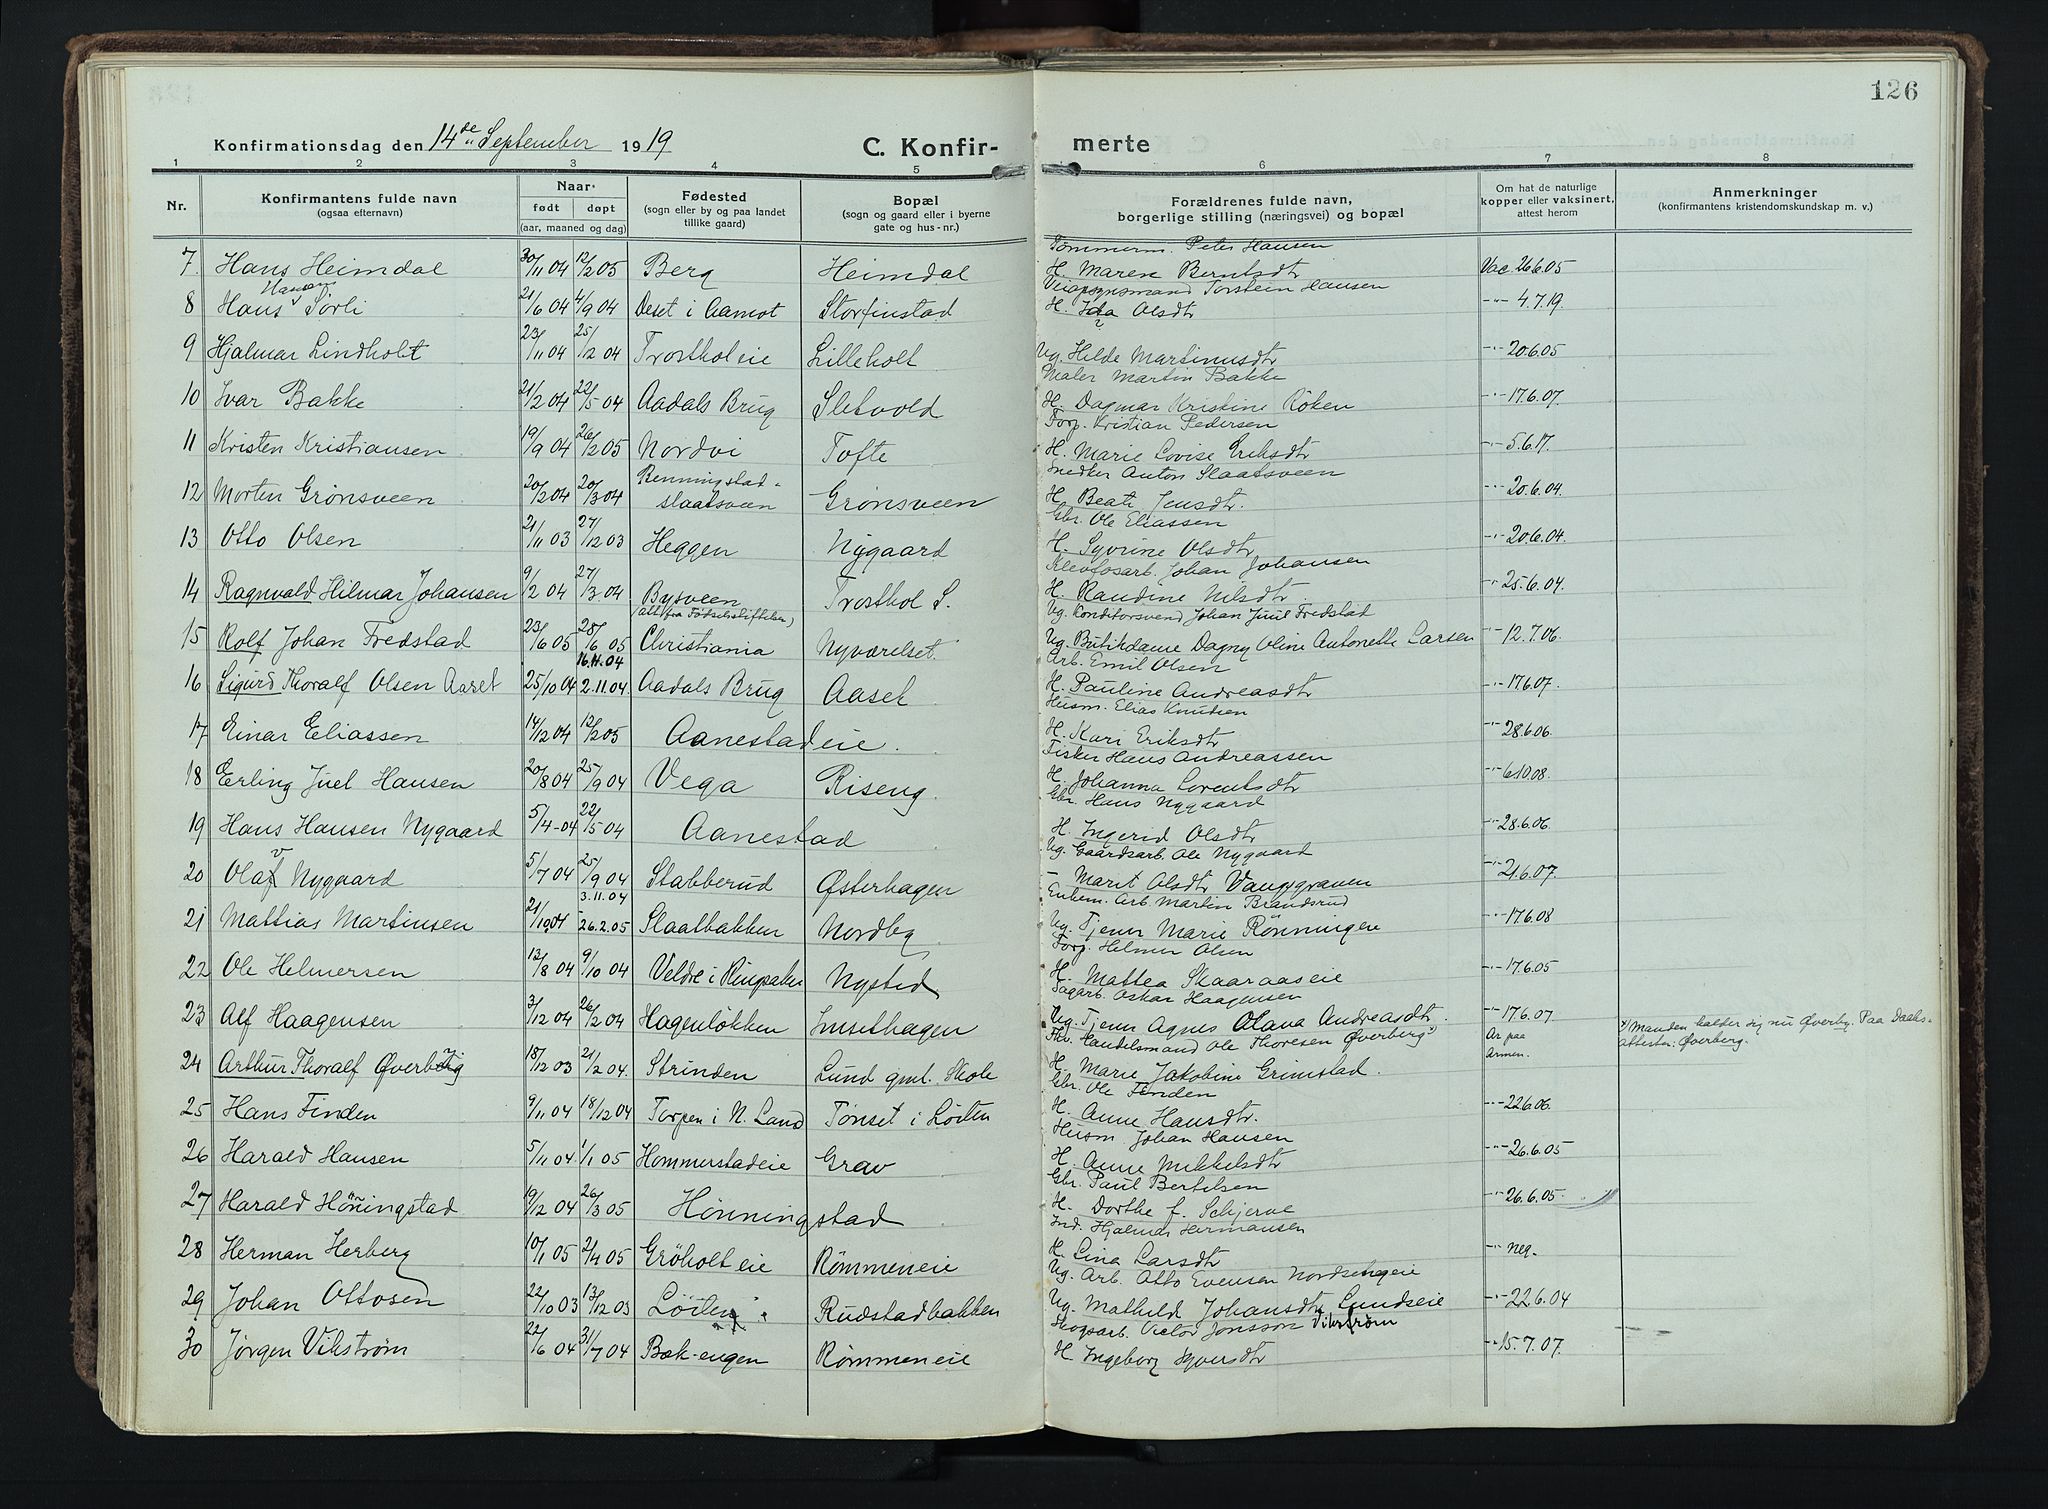 126
Konfirmationsdag den 14de September 1919
C. Konfir-
merte
1 2 3 4 5 6 7 8
Nr.
Konfirmantens fulde navn
(ogsaa efternavn)
Naar
født døpt
(aar, maaned og dag)
Fødested
(sogn eller by og paa landet
tillike gaard)
Bopæl
(sogn og gaard eller i byerne
gate og hus-nr.)
Forældrenes fulde navn,
borgerlige stilling (næringsvei) og bopæl
Om hat de naturlige
kopper eller vaksinert,
attest herom
Anmerkninger
(konfirmantens kristendomskundskap m. v.)
Tømmerm. Peter Hansen
7. Hans Heimdal 30/11 04 12/2 05 Berg Heimdal H. Maren Berntsdtr Vac 26.6.05
Hansen
Torstein Hansen
8 Hans Sørli 21/6 04 4/9 04 Deset i Aamot Storfinstad H. Ida Olsdtr -"- 4.7.19
9 Hjalmar Lindholt 23/11 04 25/12 04 Trosthol eie Lilleholt Ug. Hilde Martinusdtr -"- 20.6.05
Maler Martin Bakke
10 Ivar Bakke 21/2 04 22/5 04 Aadals Brug Sletvold H. Dagmar Kristine Röken -"- 17.6.07.
Forp. Kristian Pedersen
11 Kristen Kristiansen 19/9 04 26/2 05 Nordvi Tofte H. Marie Lovise Eriksdtr -"- 5.6.17.
Snedker Anton Slaatsveen
12 Morten Grønsveen 20/2 04 20/3 04 Benningstad-slaatsveen Grønsveen H. Beate Jensdtr. -"- 20.6.04.
Gbr. Ole Eliassen
13 Otto Olsen 21/11 03 27/12 03 Heggen Nygaard H. Syvrine Olsdtr -"- 20.6.04.
Klevfosarb. Johan Johansen
14 Ragnvald Hilmar Johansen 9/2 04 27/3 04 Bysveen Trosthol S. H. Randine Nilsdtr. -"- 25.6.04.
(att. fra Fødselsstiftelsen)
Ug. Konditorsvend Johan Juul Fredstad
15 Rolf Johan Fredstad 23/6 05 28/6 05 Christiania Nyværelset. Ug. Butikdame Dagny Oline Antonette Larsen -"- 12.7.06.
16.11.04
Arb. Emil Olsen
16 Sigurd Thoralf Olsen Aaset 25/10 04 2.11.04 Aadals Brug Aaset H. Pauline Andreasdtr -"- 17.6.07.
Husm. Elias Knudsen
17 Einar Eliassen 14/12 04 12/2 05 Aanestad eie. H. Kari Eriksdtr -"- 28.6.06.
Fisker Hans Andreassen
18 Erling Juel Hansen 20/8 04 25/9 04 Vega Riseng. H. Johanna Lorentsdtr -"- 6.10.08.
Gbr. Hans Nygaard
19 Hans Hansen Nygaard 5/4-04 22/5 04 Aanestad H. Ingerid Olsdtr -"- 28.6.06.
Ug. Gaardsarb. Ole Nygaard
20 Olaf Nygaard 5/7 04 25/9 04 Stabberud Østerhagen - Marit Olsdtr Vangsgraven -"- 21.6.07.
v
3.11.04
Enkem. Arb. Martin Brandsrud
21 Mattias Martinsen 21/10 04 26.2.05 Slaatbakken Nordby Ug. Tjener Marie Rönningen -"- 17.6.08
Forp. Helmer Olsen
22 Ole Helmersen 12/8 04 9/10 04 Veldre i Ringsaker Nystad H. Mattea Skaaraaseie -"- 17.6.05
Sagarb. Oskar Haagensen
23 Alf Haagensen 3/12 04 26/2 04 Hagenløkken Imsethagen Ug. Tjener Agnes Olava Andreasdtr. -"- 17.6.07
Fhv. Handelsmand Ole Thoresen Øverberg x)
x) Manden kalder sig nu Øverby. Paa Daabs-
attester: Øverberg.
24 Arthur Thoralf Øverby 18/12 03 21/2 04. Strinden Lund gml. Skole H. Marie Jakobine Grimstad. Ar paa Armen.
Gbr. Ole Finden
25 Hans Finden 9/11 04 18/12 04 Torpen i N. Land Tønset i Løiten H. Anne Hansdtr. -"- 22.6.06.
Husm. Johan Hansen
26 Harald Hansen 5/11 04. 1/1 05 Hommerstadeie Grav H. Anne Mikkelsdtr -"- 26.6.05
Gbr. Paul Bertelsen
27 Harald Hönningstad 19/12 04 26/3 05 Hönningstad H. Dorthe f. Schjerve -"- 26.6.05.
Ind. Hjalmar Hermansen
28 Herman Herberg 10/1 05 2/4 05 Gröholt eie Rømmeneie H. Lina Larsdtr -"- neg.
Ug. Arb. Otto Evensen Nordsengeie
29 Johan Ottosen 22/10 03 13/12 03 Löiten Rudstadbakken Ug. Mathilde Johansdtr Lundseie -"- 22.6.04
Skogsarb. Victor Jonsson Vikstrøm
30 Jørgen Vikstrøm 22/6 04 31/7 04 Bæk-engen Rømmeneie H. Ingeborg Syversdtr -"- 15.7.07.